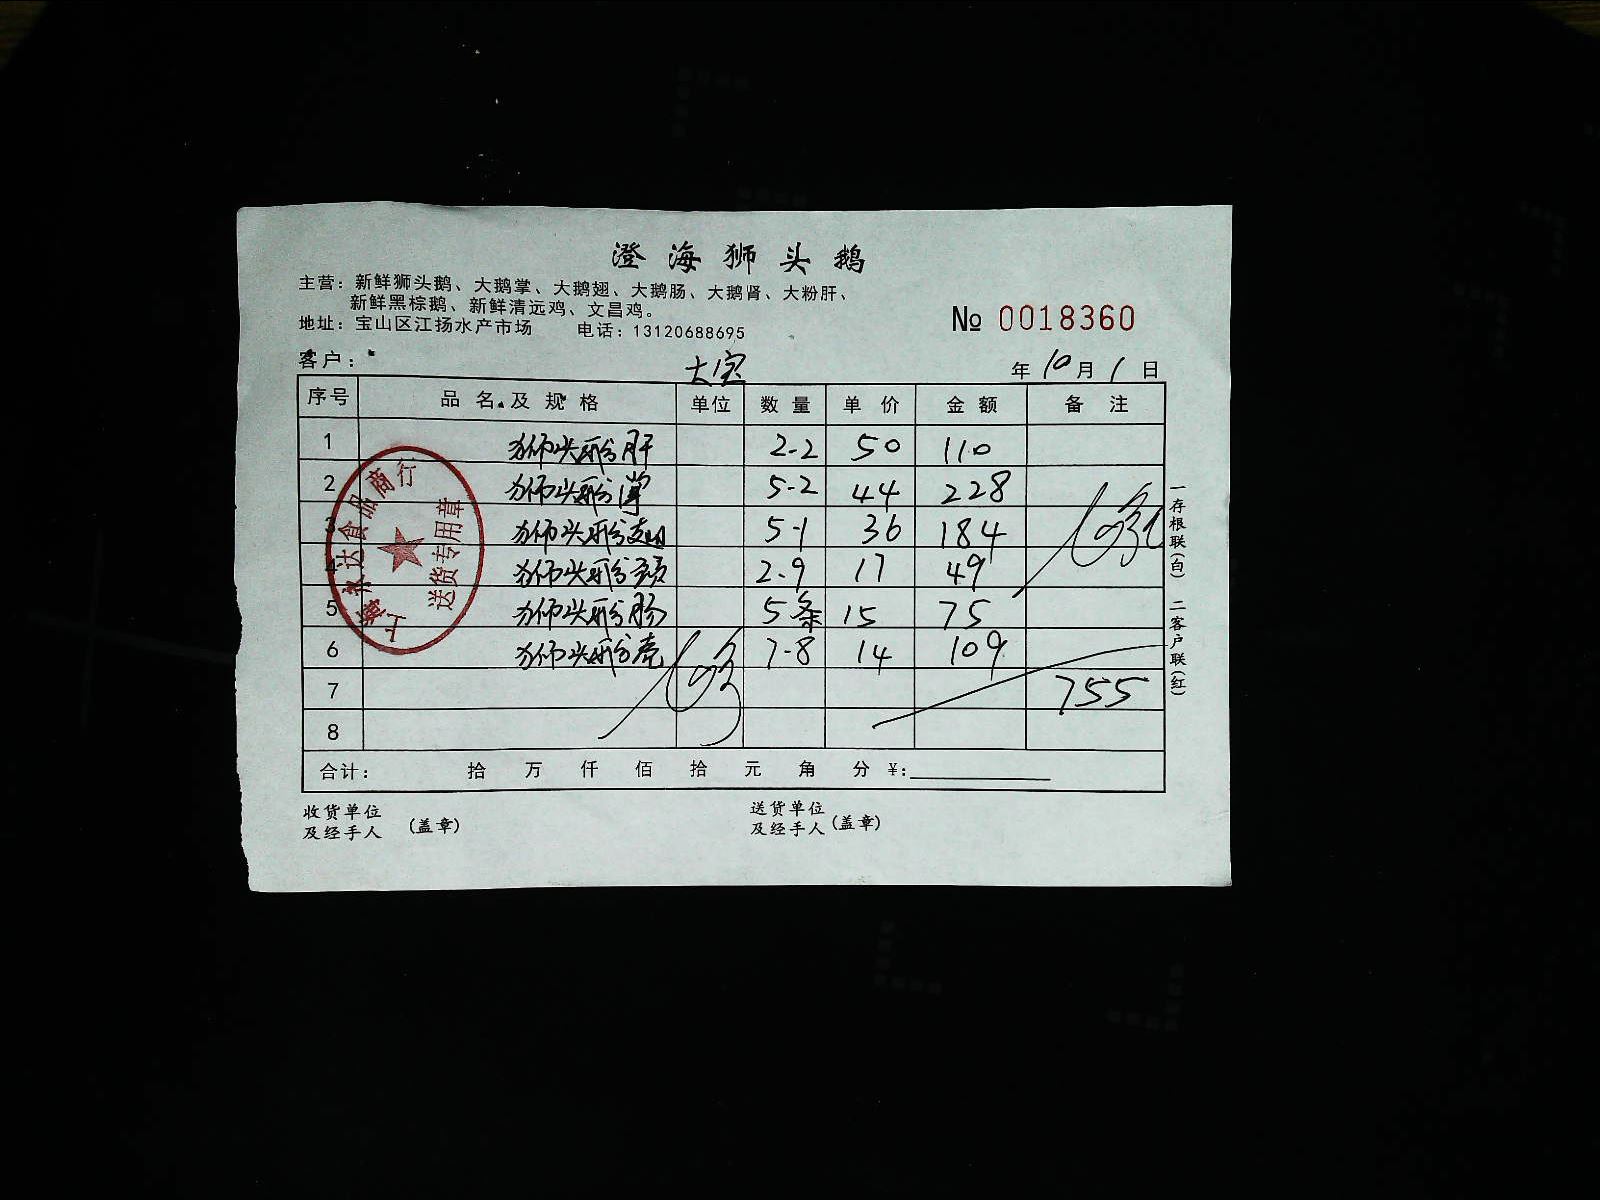 澄海狮头鹅
主营：新鲜狮头鹅、大鹅掌、大鹅翅、大鹅肠、大鹅肾、大粉肝、
新鲜黑棕鹅、新鲜清远鸡、文昌鸡。
地址：宝山区江扬水产市场 电话：13120688695
№ 0018360
客户： 大宝 年 10 月 1 日
序号 品名及规格 单位 数量 单价 金额 备注
1 狮头 肝 2-2 50 110
2 狮头 5-2 44 228
3 狮头 5-1 36 184
4 狮头 2.9 17 49
5 狮头 肠 5条 15 75
6 狮头 7-8 14 109
7 755
8
合计： 拾 万 仟 佰 拾 元 角 分 ¥:
收货单位
及经手人 (盖章)
送货单位
及经手人 (盖章)
一存根联(白) 二客户联(红)
食品商行
送货专用章